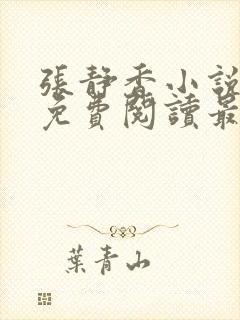 張靜香小說
免費閱讀最
葉青山